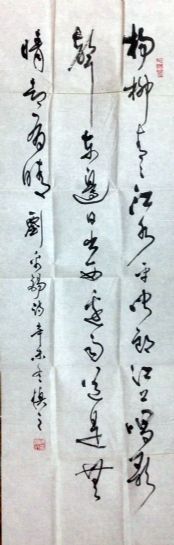 杨柳青々江水平闻郎江上唱歌
声东边日出西边雨道是无
晴却有晴 刘禹锡诗辛未冬